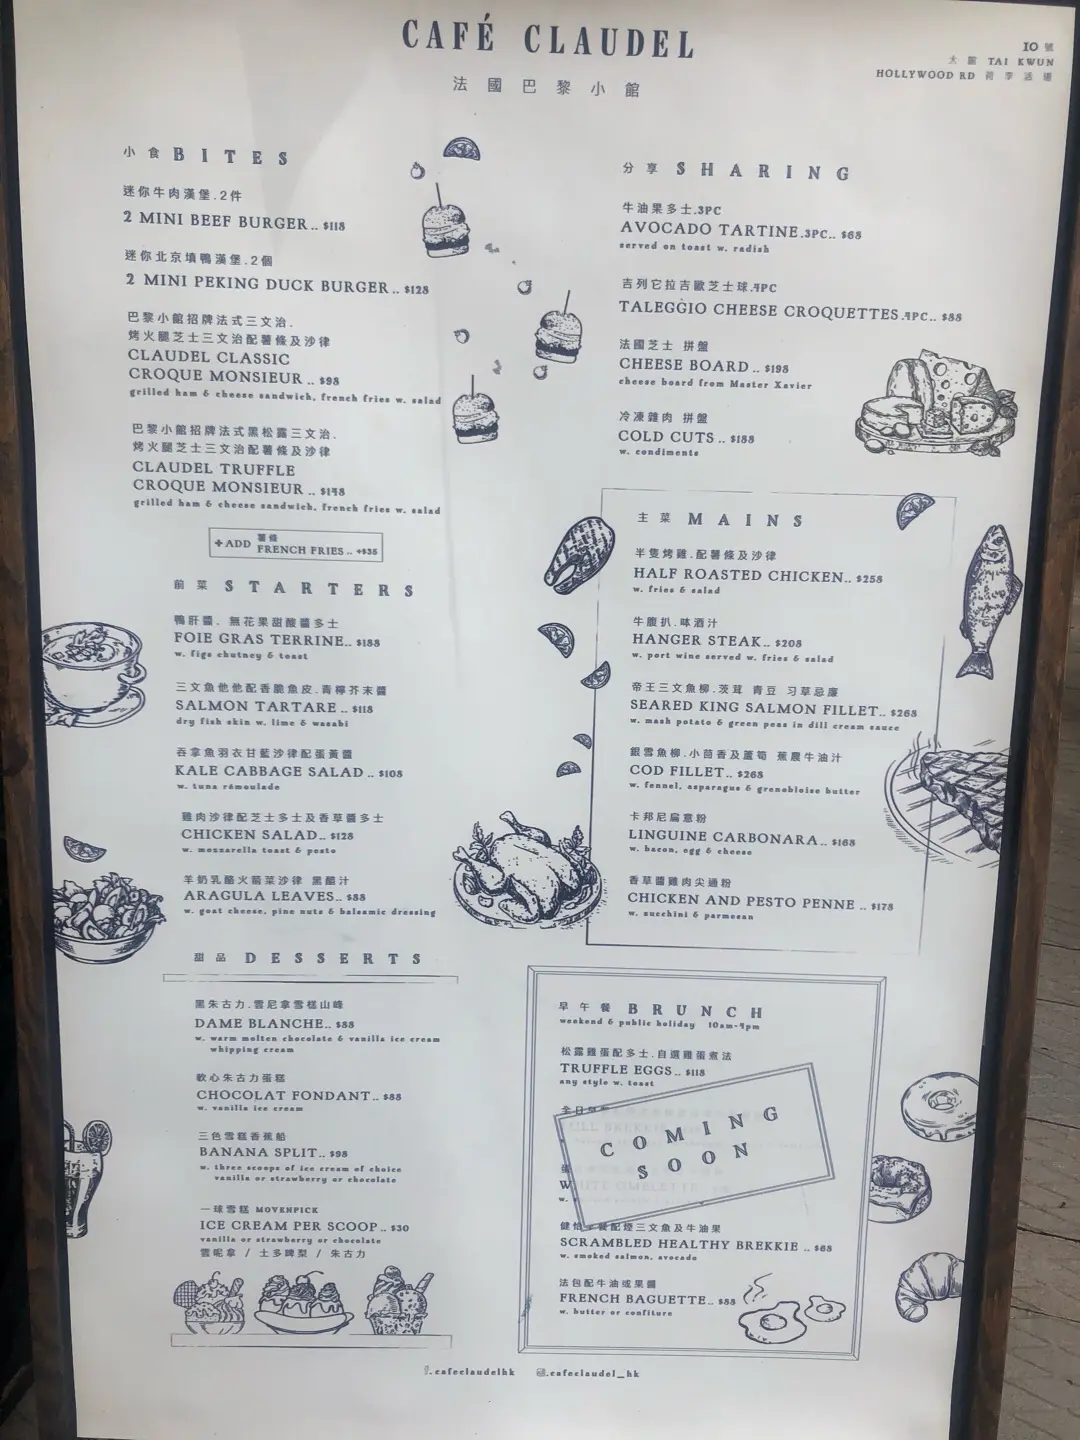 CAFÉ CLAUDEL
法國巴黎小館
10 號
大館 TAI KWUN
HOLLYWOOD RD 荷李活道
小食 BITES
迷你牛肉漢堡.2件
2 MINI BEEF BURGER.. $118
迷你北京填鴨漢堡.2個
2 MINI PEKING DUCK BURGER.. $128
巴黎小館招牌法式三文治.
烤火腿芝士三文治配薯條及沙律
CLAUDEL CLASSIC
CROQUE MONSIEUR .. $98
grilled ham & cheese sandwich, french fries w. salad
巴黎小館招牌法式黑松露三文治.
烤火腿芝士三文治配薯條及沙律
CLAUDEL TRUFFLE
CROQUE MONSIEUR .. $148
grilled ham & cheese sandwich, french fries w. salad
+ADD 薯條
FRENCH FRIES.. +$35
前菜 STARTERS
鴨肝醬. 無花果甜酸醬多士
FOIE GRAS TERRINE.. $188
w. figs chutney & toast
三文魚他他配香脆魚皮.青檸芥末醬
SALMON TARTARE .. $118
dry fish skin w. lime & wasabi
吞拿魚羽衣甘藍沙律配蛋黃醬
KALE CABBAGE SALAD .. $108
w. tuna rémoulade
雞肉沙律配芝士多士及香草醬多士
CHICKEN SALAD.. $128
w. mozzarella toast & pesto
羊奶乳酪火箭菜沙律 黑醋汁
ARAGULA LEAVES.. $88
w. goat cheese, pine nuts & balsamic dressing
甜品 DESSERTS
黑朱古力.雲尼拿雪糕山峰
DAME BLANCHE.. $88
w. warm molten chocolate & vanilla ice cream
whipping cream
軟心朱古力蛋糕
CHOCOLAT FONDANT.. $88
w. vanilla ice cream
三色雪糕香蕉船
BANANA SPLIT.. $98
w. three scoops of ice cream of choice
vanilla or strawberry or chocolate
一球雪糕 MOVENPICK
ICE CREAM PER SCOOP.. $30
vanilla or strawberry or chocolate
雲呢拿 / 士多啤梨 / 朱古力
分享 SHARING
牛油果多士.3PC
AVOCADO TARTINE.3PC.. $68
served on toast w. radish
吉列它拉吉歐芝士球.4PC
TALEGGIO CHEESE CROQUETTES.4PC.. $88
法國芝士 拼盤
CHEESE BOARD .. $198
cheese board from Master Xavier
冷凍雜肉 拼盤
COLD CUTS .. $188
w. condiments
主菜 MAINS
半隻烤雞.配薯條及沙律
HALF ROASTED CHICKEN.. $258
w. fries & salad
牛腹扒.砵酒汁
HANGER STEAK.. $208
w. port wine served w. fries & salad
帝王三文魚柳.茨茸 青豆 刁草忌廉
SEARED KING SALMON FILLET.. $268
w. mash potato & green peas in dill cream sauce
銀雪魚柳.小茴香及蘆筍 蕉農牛油汁
COD FILLET.. $268
w. fennel, asparagus & grenobloise butter
卡邦尼扁意粉
LINGUINE CARBONARA.. $168
w. bacon, egg & cheese
香草醬雞肉尖通粉
CHICKEN AND PESTO PENNE .. $178
w. zucchini & parmesan
早午餐 BRUNCH
weekend & public holiday 10am-4pm
松露雞蛋配多士.自選雞蛋煮法
TRUFFLE EGGS.. $118
any style w. toast
全日
COMING
SOON
FULL BREKKIE
WHITE OMELETTE
w.
健怡 餐配煙三文魚及牛油果
SCRAMBLED HEALTHY BREKKIE .. $68
w. smoked salmon, avocado
法包配牛油或果醬
FRENCH BAGUETTE.. $88
w. butter or confiture
.cafeclaudelhk .cafeclaudel_hk